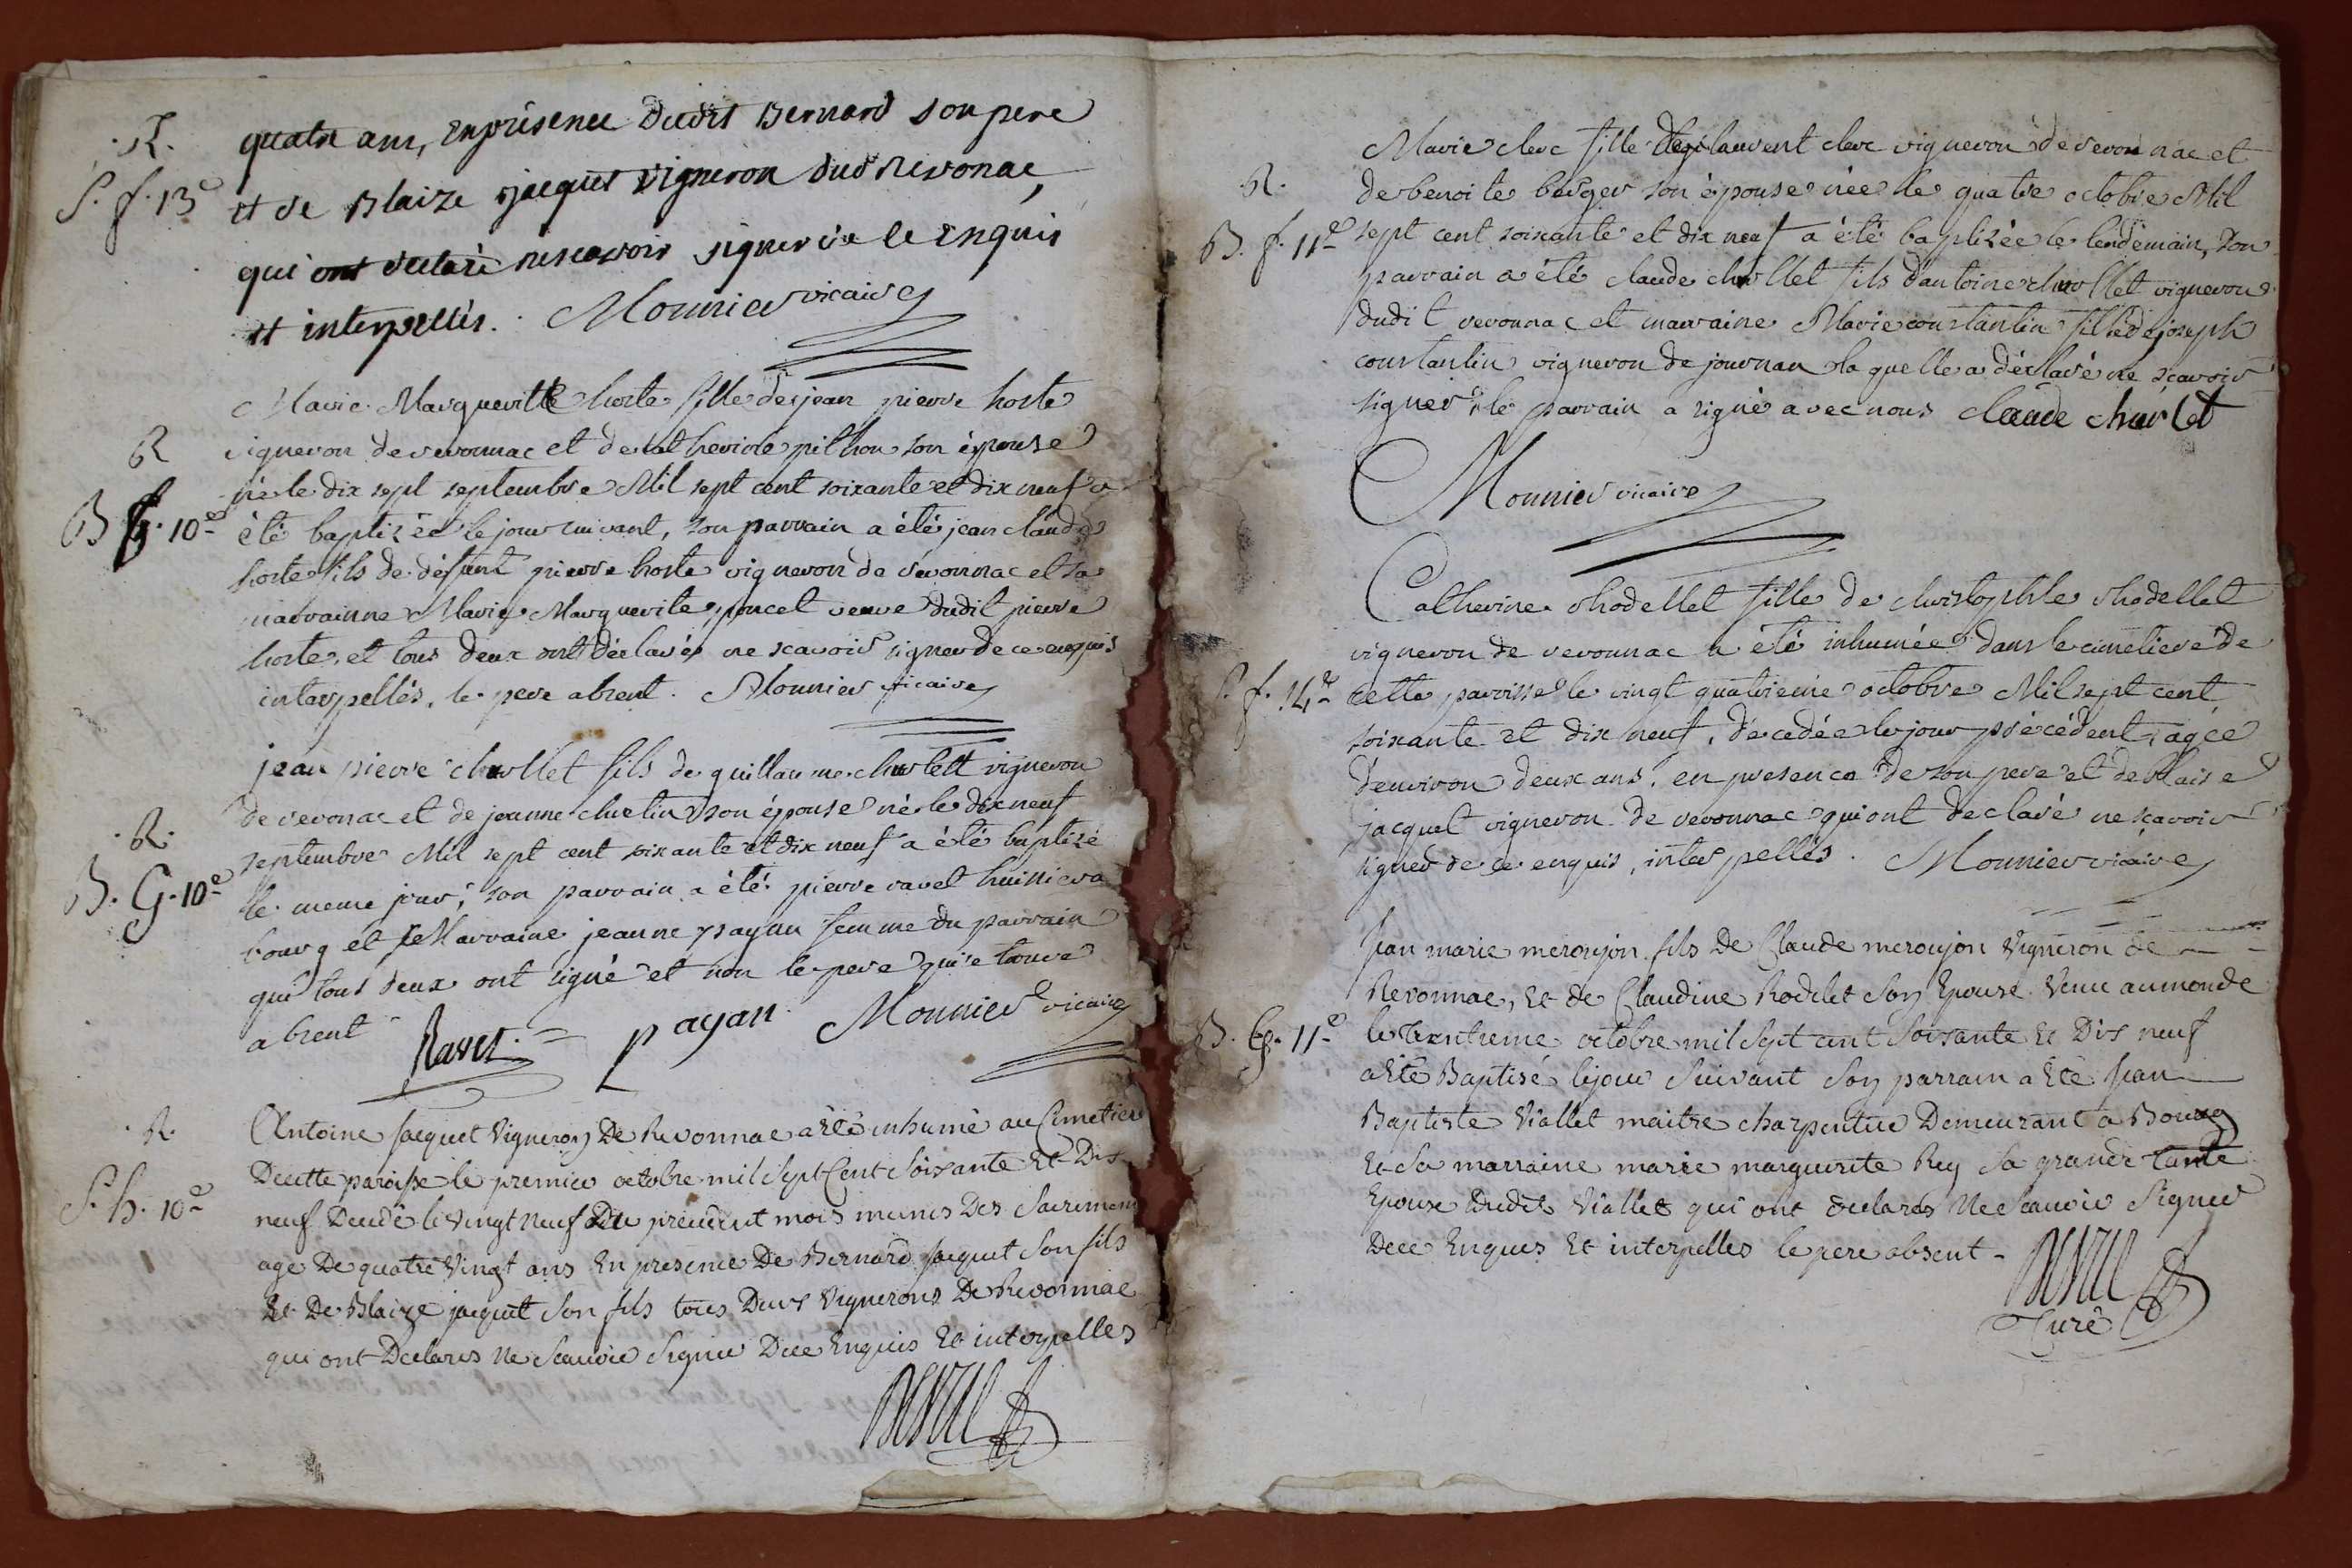 R.
S. f. 13e
quatre ans, en présence dudit Bernard son pere
et de Blaize jacquet vigneron dud Revonac,
qui ont déclaré ne scavoir signer de ce enquis
et interpellés. Monnier vicaire
R
B f. 10e
Marie Margueritte hoste fille de jean pierre hoste
vigneron de revonnac et de catherine pithon son épouse
née le dix sept septembre Mil sept cent soixante et dix neuf a
été baptizée le jour suivant, son parrain a été jean claude
hoste fils de défunt pierre hoste vigneron de revonnac et sa
marrainne Marie Marguerite poncet veuve dudit pierre
hoste, et tous deux ont déclarés ne scavoir signer de ce enquis
interpellés, le pere absent. Monnier vicaire
.R.
B. G. 10e
jean pierre chollet fils de guillaume chollett vigneron
de revonac et de jeanne son épouse né le dix neuf
septembre Mil sept cent soixante et dix neuf a été baptizé
le meme jour, son parrain a été pierre ravet huissier a
bourg et Marraine jeanne payan femme du parrain
qui tous deux ont signé et non le pere qui se trouve
absent Ravet payan Monnier vicaire
.R.
S. h. 10e
Antoine Jacquet Vigneron De Revonnac a été inhumé au Cimetiere
De cette paroisse le premier octobre mil Sept Cent Soixante Et Dix
neuf Decedé le Vingt Neuf Du precedent mois munis Des Sacremens
agé De quatre Vingt ans En presence De Bernard Jacquet Son fils
Et De Blaize jacquet Son fils tous Deux Vignerons De Revonnac
qui ont Declarés Ne Scauoir Signer De ce Enquis Et interpelles
.R.
B. f. 11e
Marie clerc fille de laurent clerc vigneron de revonnac et
de benoite berger son épouse née le quatre octobre Mil
sept cent soixante et dix neuf a été baptizée le lendemain, son
parrain a été claude chollet fils d'antoine chollet vigneron
dudit revonnac et marraine Marie constantin fille de joseph
constantin vigneron de journan la quelle a déclaré ne scavoir
signer le parrain a signé avec nous claude
Monnier vicaire
S. f. 14e
Catherine rhodellet fille de christophle rhodellet
vigneron de revonnac a été inhumée dans le cimetiere de
cette parroisse le vingt quatrieme octobre Mil sept cent
soixante et dix neuf, décedée le jour précédent, agée
d'environ deux ans, en presence de son pere et de blaise
jacquet vigneron de revonnac qui ont declaré ne scavoir
signer de ce enquis, interpellés. Monnier vicaire
B. G. 11e
Jean marie meronjon fils De Claude meronjon Vigneron de
Revonnac, Et de Claudine Rodelet Son Epouse Venu au monde
le trentieme octobre mil Sept cent Soixante Et Dix neuf
a Eté Baptisé le jour Suivant Son parrain a Eté Jean
Baptiste Viallet maitre charpentier Demeurant a Bourg
Et Sa marraine marie marguerite Rey Sa grande tante
Epouse Dudit Viallet qui ont declarés Ne Scauoir Signer
De ce Enquis Et interpelles le pere absent -
Curé